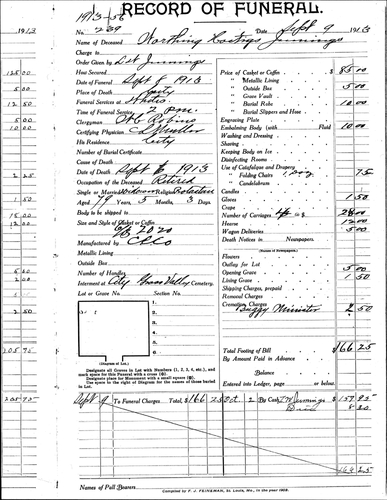 1913-56
RECORD OF FUNERAL.
1913 No. 239 Date Sept 9 1913
Name of Deceased Worthing Jennings
Charge to
Order Given by Jennings
How Secured
Date of Funeral Sept 8 1913
Place of Death City
Funeral Services at
Time of Funeral Service
Clergyman
Certifying Physician
His Residence City
Number of Burial Certificate
Cause of Death
Date of Death Sept 6 1913
Occupation of the Deceased Retired
Single or Married Widower Religion Protestant
Aged 79 Years, 5 Months, 3 Days.
Body to be shipped to
Size and Style of Casket or Coffin
6/3 2020
Manufactured by
Metallic Lining
Outside Box
Number of Handles
Interment at City Grass Valley Cemetery.
Lot or Grave No. Section No.
1.
2.
3.
4.
5.
6.
(Diagram of Lot.)
Designate all Graves in Lot with Numbers (1, 2, 3, 4, etc.), and
mark space for this Funeral with a cross
Designate place for Monument with a small square
Use space to right of Diagram for the names of those buried
in Lot.
Price of Casket or Coffin $ 85 00
" Metallic Lining
" Outside Box 5 00
" Grave Vault
" Burial Robe 10 00
" Burial Slippers and Hose
Engraving Plate
Embalming Body (with Fluid 10 00
Washing and Dressing
Shaving
Keeping Body on Ice
Disinfecting Rooms
Use of Catafalque and Drapery
" Folding Chairs 75
" Candelabrum
Candles
Gloves 1 50
Crape
Number of Carriages
Hearse 12 00
Wagon Deliveries 5 00
Death Notices in Newspapers.
(Names of Newspapers.)
Flowers
Outlay for Lot
Opening Grave 5 00
Lining Grave 1 50
Shipping Charges, prepaid
Removal Charges
Cremation Charges
Buggy Minister 2 50
Total Footing of Bill $ 166 25
By Amount Paid in Advance
Balance
Entered into Ledger, page or below.
125 00
5 00
12 50
5 00
10 00
2 25
1 50
15 00
12 00
5 00
2 00
2 50
205 75
205 75 Sept 9 To Funeral Charges Total, $ 166 25 Oct. 2 By Cash Jennings $ 157 95
8 30
Names of Pall Bearers
Compiled by F. J. FEINEMAN, St. Louis, Mo., in the year 1909.